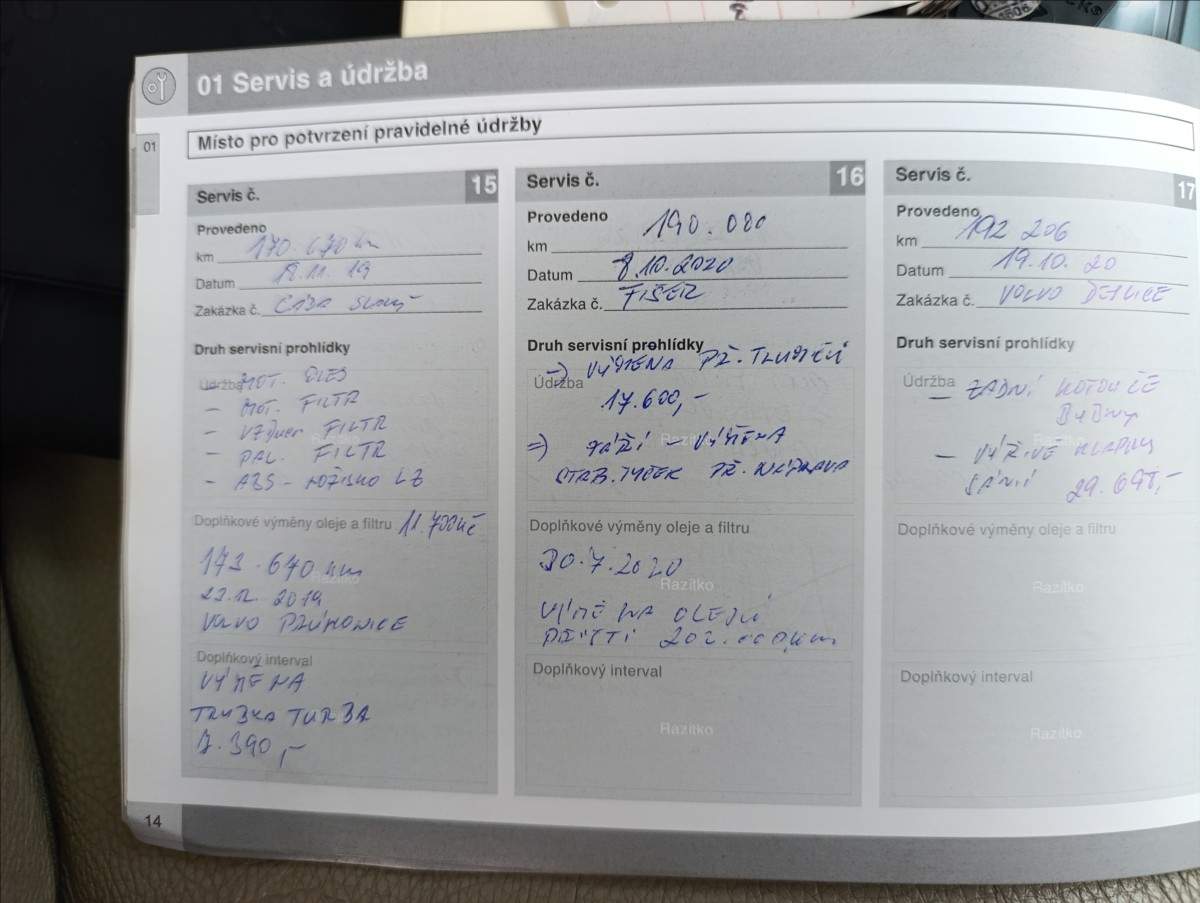 01 Servis a údržba
01
Místo pro potvrzení pravidelné údržby
Servis č. 15
Provedeno
km 170.670 km
Datum 11. 19
Zakázka č.
Druh servisní prohlídky
Údržba MOT. OLEJ
- MOT. FILTR
- VZDUCH FILTR
- PAL. FILTR
- ABS - LOŽISKO LZ
Doplňkové výměny oleje a filtru 11.700 Kč
173.670 km
Razítko
2019
VOLVO PRŮHONICE
Doplňkový interval
VÝMĚNA
TRUBKA TURBA
7.390,-
Servis č. 16
Provedeno
km 190.000
Datum 8.10.2020
Zakázka č. FIŠER
Druh servisní prohlídky
=> VÝMĚNA PŘ. TLUMIČŮ
Údržba
17.600,-
Razítko
=> ZÁŘÍ - VÝMĚNA
STAB. TYČEK PŘ. NÁPRAVA
Doplňkové výměny oleje a filtru
30.7.2020
Razítko
VÝMĚNA OLEJŮ
PŘÍŠTÍ 202.000 km
Doplňkový interval
Razítko
Servis č. 17
Provedeno
km 192 206
Datum 19.10. 20
Zakázka č. VOLVO
Druh servisní prohlídky
Údržba
- ZADNÍ KOTOUČE
BUBNY
Razítko
- KLAPKY
SÁNÍ
Doplňkové výměny oleje a filtru
Razítko
Doplňkový interval
Razítko
14